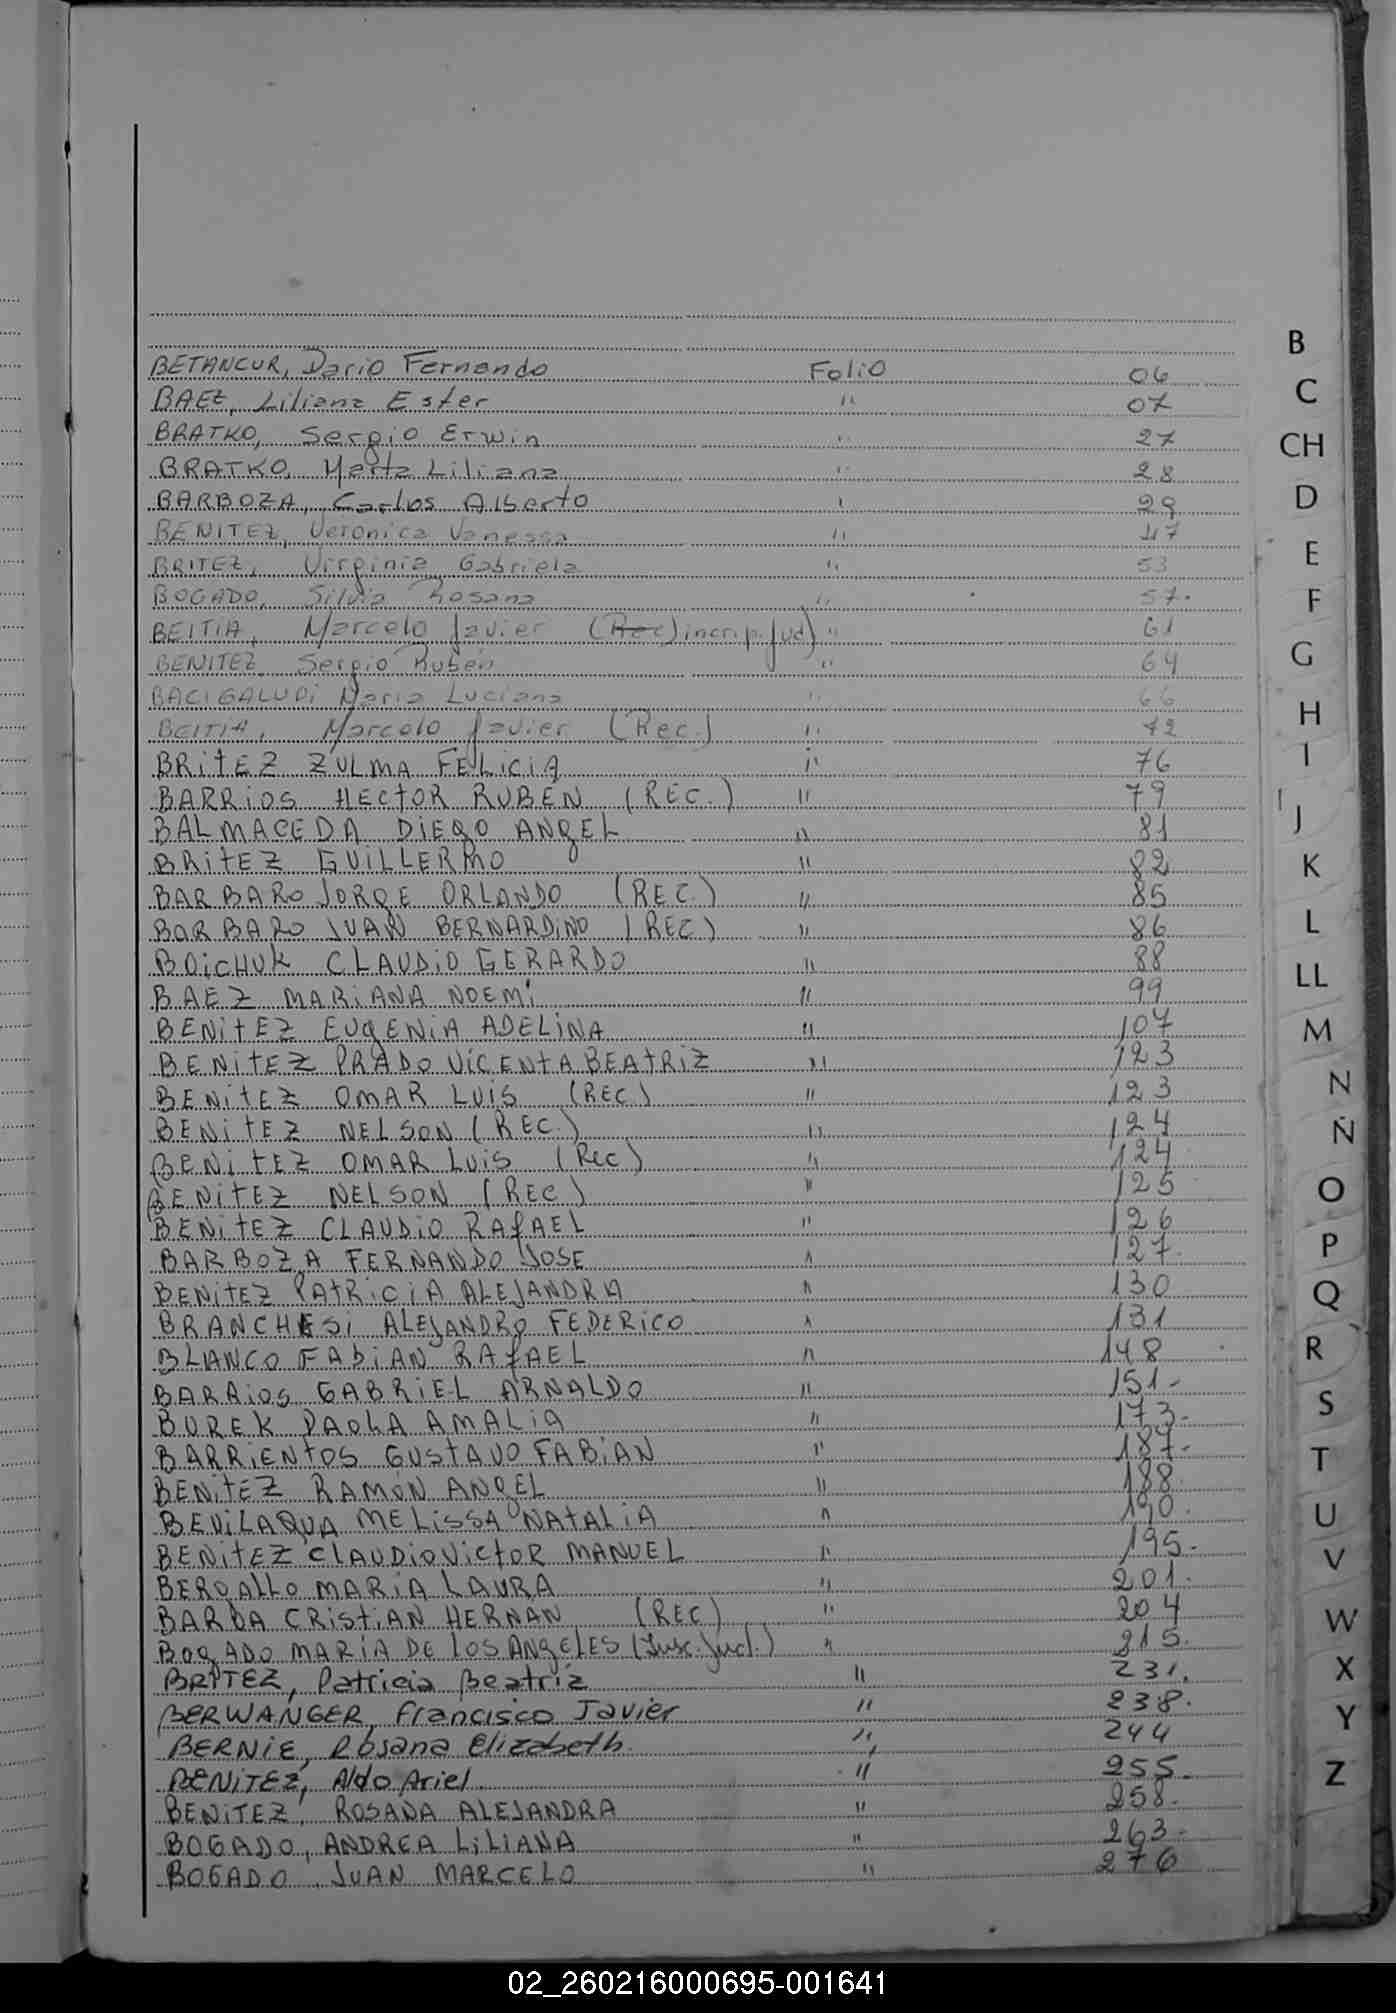 BETANCUR, Dario Fernando Folio 06
BAEZ, Liliana Ester " 07
BRATKO, Sergio Erwin " 27
BRATKO, Marta Liliana " 28
BARBOZA, Carlos Alberto " 29
BENITEZ, Veronica Vanessa " 47
BRITEZ, Virginia Gabriela " 53
BOGADO, Silvia Rosana " 57.
BEITIA, Marcelo Javier (Rec) incrip. Jud) " 61
BENITEZ Sergio Rubén " 64
BACIGALUPI Maria Luciana " 66
BEITIA, Marcelo Javier (Rec.) " 72
BRITEZ ZULMA FELICIA " 76
BARRIOS HECTOR RUBEN (REC.) " 79
BALMACEDA DIEGO ANGEL " 81
BRITEZ GUILLERMO " 82
BARBARO JORGE ORLANDO (REC.) " 85
BARBARO JUAN BERNARDINO (REC) " 86
BOICHUK CLAUDIO GERARDO " 88
BAEZ MARIANA NOEMI " 99
BENITEZ EUGENIA ADELINA " 107
BENITEZ PRADO VICENTA BEATRIZ " 123
BENITEZ OMAR LUIS (REC.) " 123
BENITEZ NELSON (REC.) " 124
BENITEZ OMAR LUIS (Rec) " 124
BENITEZ NELSON (REC) " 125
BENITEZ CLAUDIO RAFAEL " 126
BARBOZA FERNANDO JOSE " 127.
BENITEZ PATRICIA ALEJANDRA " 130
BRANCHESI ALEJANDRO FEDERICO " 131
BLANCO FABIAN RAFAEL " 148
BARRIOS GABRIEL ARNALDO " 151-
BUREK PAOLA AMALIA " 173-
BARRIENTOS GUSTAVO FABIAN " 187-
BENITEZ RAMON ANGEL " 188.
BEVILAQUA MELISSA NATALIA " 190.
BENITEZ CLAUDIO VICTOR MANUEL " 195.
BERGALLO MARIA LAURA " 201.
BARDA CRISTIAN HERNAN (REC) " 204
BOGADO MARIA DE LOS ANGELES (Insc. Jud.) " 215.
BRITEZ, Patricia Beatriz " 231.
BERWANGER, Francisco Javier " 238.
BERNIE, Rosana Elizabeth. " 244
BENITEZ, Aldo Ariel " 255.
BENITEZ, ROSANA ALEJANDRA " 258.
BOGADO, ANDREA LILIANA " 263-
BOGADO, JUAN MARCELO " 276
B
C
CH
D
E
F
G
H
I
J
K
L
LL
M
N
Ñ
O
P
Q
R
S
T
U
V
W
X
Y
Z
02_260216000695-001641